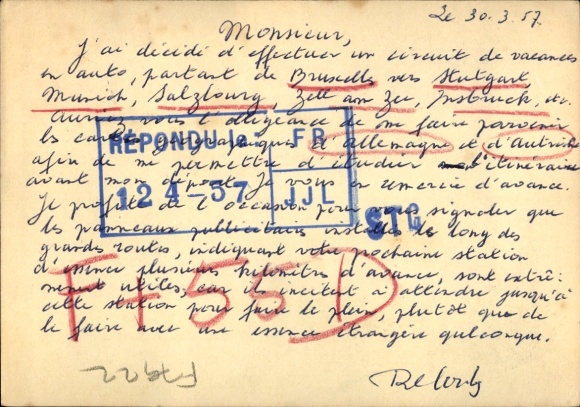 Le 30.3.57
Monsieur,
J'ai décidé d'effectuer un circuit de vacances
en auto, partant de Bruxelles vers Stuttgart
Munich, Salzbourg, Zell am Zee, Insbruck, etc.
Auriez vous l'obligeance de me faire parvenir
les cartes géographiques d'Allemagne et d'Autriche
afin de me permettre d'étudier l'itinéraire
avant mon départ. Je vous en remercie d'avance.
Je profite de l'occasion pour vous signaler que
les panneaux publicitaires installés le long des
grandes routes, indiquant votre prochaine station
d'essence plusieurs kilomètres d'avance, sont extrê-
mement utiles, car ils incitent à attendre jusqu'à
cette station pour faire le plein, plutôt que de
le faire avec une essence étrangère quelconque.
RÉPONDU le: FB
12 4-57 JJL
STG